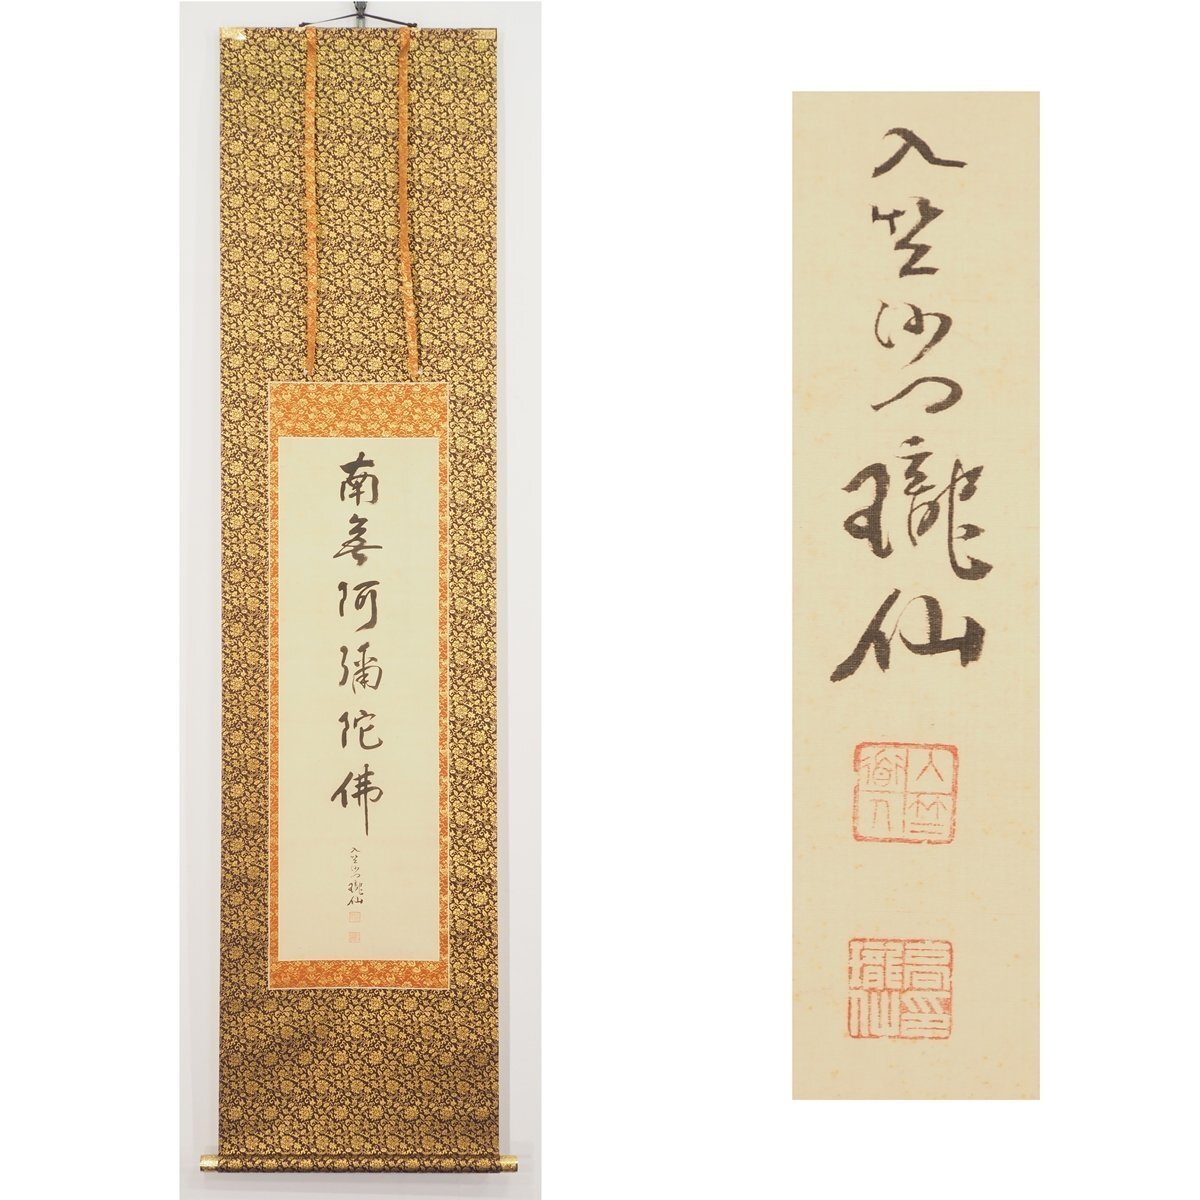 南無阿彌陀佛
入竺沙門瓏仙
入竺沙門瓏仙
高階瓏仙